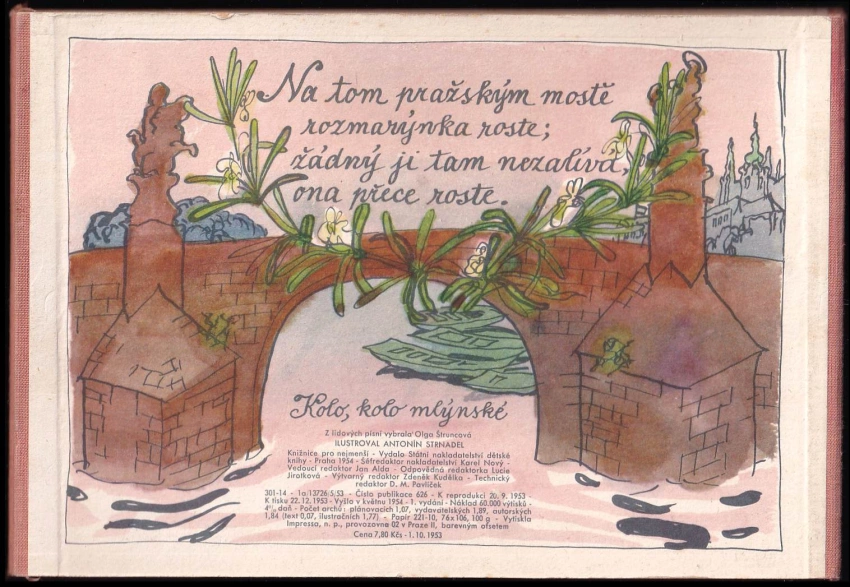 Na tom pražským mostě
rozmarýnka roste;
žádný ji tam nezalívá,
ona přece roste.
Kolo, kolo mlýnské
Z lidových písní vybrala Olga Štruncová
ILUSTROVAL ANTONÍN STRNADEL
Knižnice pro nejmenší - Vydalo Státní nakladatelství dětské
knihy - Praha 1954 - Šéfredaktor nakladatelství Karel Nový -
Vedoucí redaktor Jan Alda - Odpovědná redaktorka Lucie
Jirotková - Výtvarný redaktor Zdeněk Kudělka - Technický
redaktor D. M. Pavlíček
301-14 - 1a/13726/5/53 - Číslo publikace 626 - K reprodukci 20. 9. 1953 -
K tisku 22. 12. 1953 - Vyšlo v květnu 1954 - 1. vydání - Náklad 60.000 výtisků -
daň - Počet archů: plánovacích 1,07, vydavatelských 1,89, autorských
1,84 (text 0,07, ilustračních 1,77) - Papír 221-10, 76x106, 100 g - Vytiskla
Impressa, n. p., provozovna 02 v Praze II, barevným ofsetem
Cena 7,80 Kčs - 1. 10. 1953